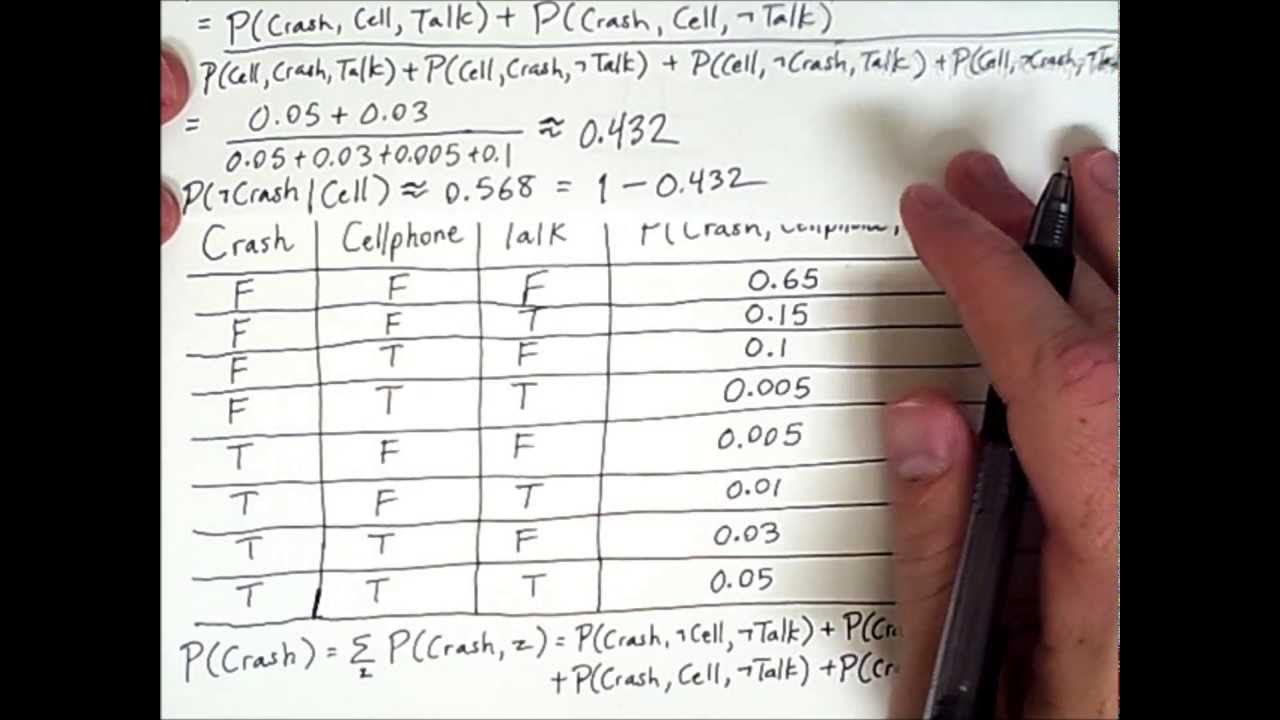 = P(Crash, Cell, Talk) + P(Crash, Cell, ¬Talk)
P(Cell, Crash, Talk) + P(Cell, Crash, ¬Talk) + P(Cell, ¬Crash, Talk) + P(Cell, ¬Crash,
= 0.05 + 0.03
0.05 + 0.03 + 0.005 + 0.1
≈ 0.432
P(¬Crash | Cell) ≈ 0.568 = 1 - 0.432
Crash Cellphone Talk P(Crash, Cellphone,
F F F 0.65
F F T 0.15
F T F 0.1
F T T 0.005
T F F 0.005
T F T 0.01
T T F 0.03
T T T 0.05
P(Crash) = Σz P(Crash, z) = P(Crash, ¬Cell, ¬Talk) +
+ P(Crash, Cell, ¬Talk) +